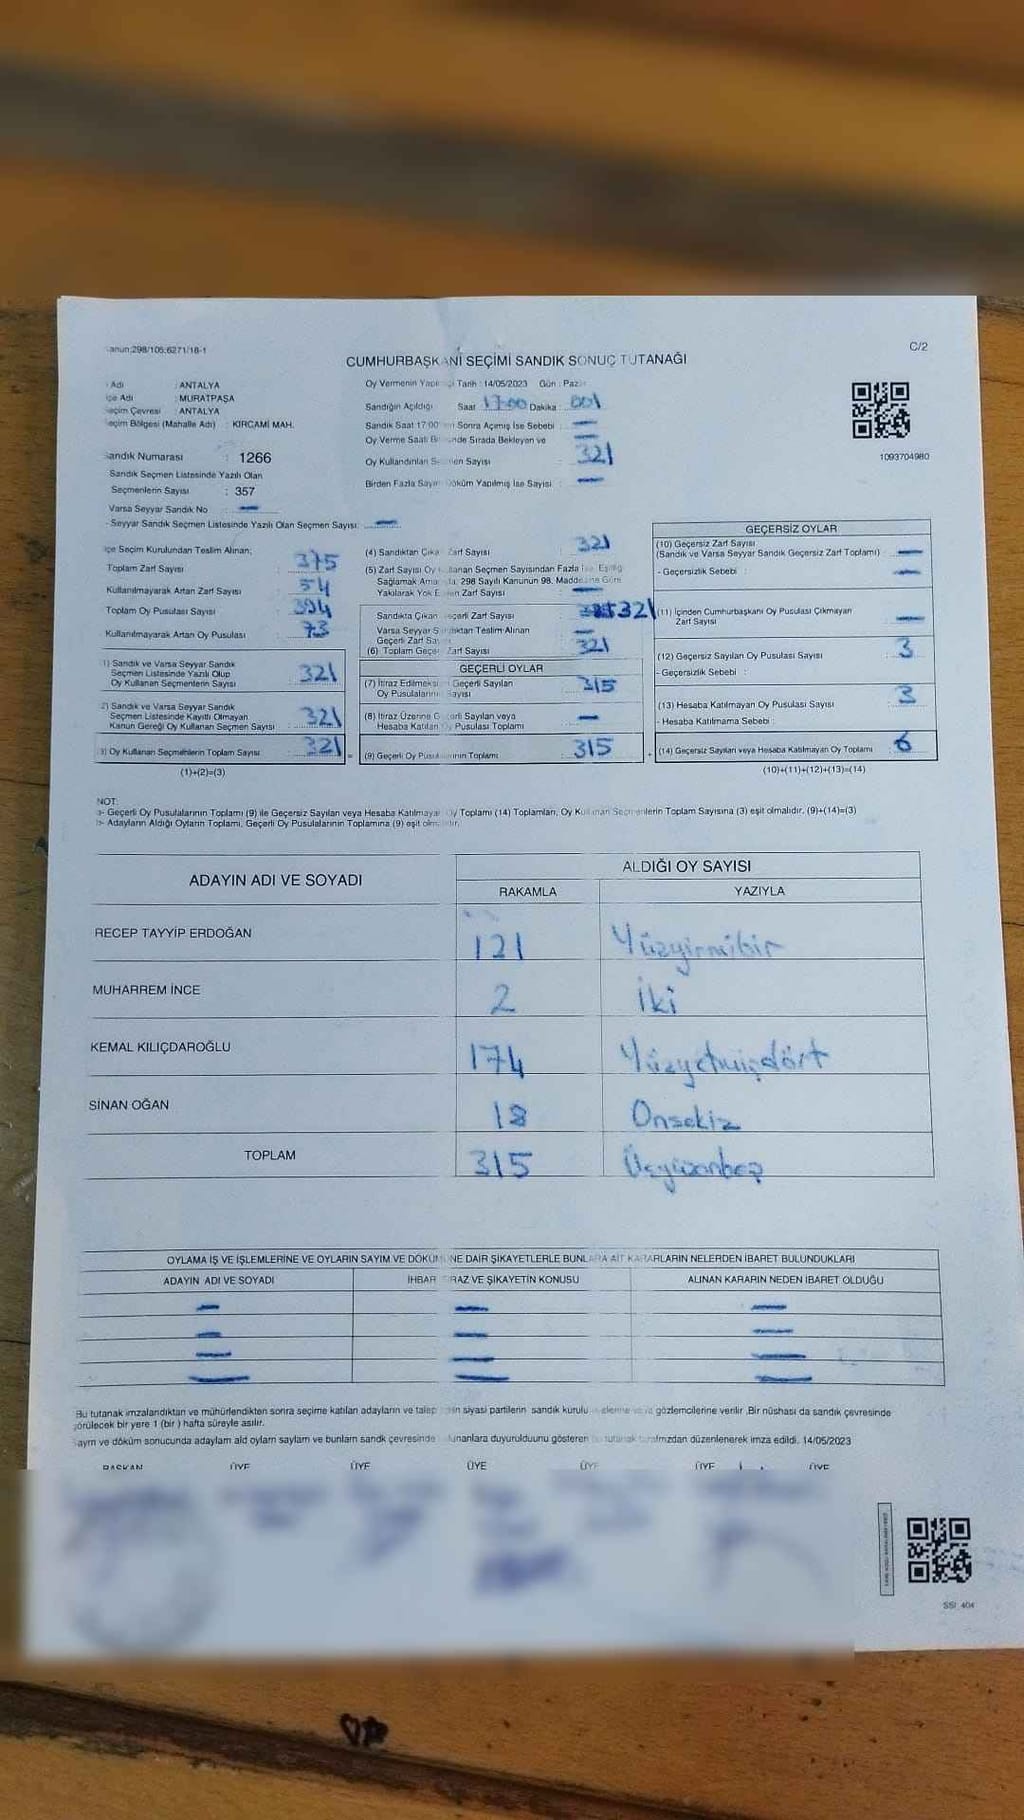 Kanun;298/105;6271/18-1
C/2
CUMHURBAŞKANI SEÇİMİ SANDIK SONUÇ TUTANAĞI
Adı : ANTALYA
İlçe Adı : MURATPAŞA
Seçim Çevresi : ANTALYA
Seçim Bölgesi (Mahalle Adı) : KIRCAMİ MAH.
Oy Vermenin Tarih : 14/05/2023 Gün :
Sandığın Açıldığı Saat 17:00 Dakika : 00
Sandık Saat 17:00 Sonra Açımış İse Sebebi : —
Oy Verme Saati Sırada Bekleyen ve —
Oy Kullandırılan Sayısı : 321
Birden Fazla Sayım Döküm Yapılmış İse Sayısı : —
1093704980
Sandık Numarası : 1266
Sandık Seçmen Listesinde Yazılı Olan
Seçmenlerin Sayısı : 357
Varsa Seyyar Sandık No : —
- Seyyar Sandık Seçmen Listesinde Yazılı Olan Seçmen Sayısı: —
İlçe Seçim Kurulundan Teslim Alınan;
Toplam Zarf Sayısı : 375
Kullanılmayarak Artan Zarf Sayısı : 54
Toplam Oy Pusulası Sayısı : 394
Kullanılmayarak Artan Oy Pusulası : 73
1) Sandık ve Varsa Seyyar Sandık
Seçmen Listesinde Yazılı Olup
Oy Kullanan Seçmenlerin Sayısı : 321
2) Sandık ve Varsa Seyyar Sandık
Seçmen Listesinde Kayıtlı Olmayan
Kanun Gereği Oy Kullanan Seçmen Sayısı : 321
3) Oy Kullanan Seçmenlerin Toplam Sayısı : 321
(1)+(2)=(3)
(4) Sandıktan Çıkan Zarf Sayısı : 321
(5) Zarf Sayısı Oy Kullanan Seçmen Sayısından Fazla İse, Eşitliği
Sağlamak 298 Sayılı Kanunun 98. Maddesine Göre
Yakılarak Yok Edilen Zarf Sayısı : —
Sandıkta Çıkan Geçerli Zarf Sayısı : 321
Varsa Seyyar Sandıktan Teslim Alınan
Geçerli Zarf Sayısı —
(6) Toplam Geçerli Zarf Sayısı : 321
GEÇERLİ OYLAR
(7) İtiraz Edilmeksizin Geçerli Sayılan
Oy Pusulalarının Sayısı : 315
(8) İtiraz Üzerine Geçerli Sayılan veya
Hesaba Katılan Oy Pusulası Toplamı : —
(9) Geçerli Oy Pusulalarının Toplamı : 315
GEÇERSİZ OYLAR
(10) Geçersiz Zarf Sayısı
(Sandık ve Varsa Seyyar Sandık Geçersiz Zarf Toplamı) : —
- Geçersizlik Sebebi : —
(11) İçinden Cumhurbaşkanı Oy Pusulası Çıkmayan
Zarf Sayısı : —
(12) Geçersiz Sayılan Oy Pusulası Sayısı : 3
- Geçersizlik Sebebi :
(13) Hesaba Katılmayan Oy Pusulası Sayısı : 3
- Hesaba Katılmama Sebebi :
(14) Geçersiz Sayılan veya Hesaba Katılmayan Oy Toplamı : 6
(10)+(11)+(12)+(13)=(14)
NOT:
a- Geçerli Oy Pusulalarının Toplamı (9) ile Geçersiz Sayılan veya Hesaba Katılmayan Oy Toplamı (14) Toplamları, Oy Kullanan Seçmenlerin Toplam Sayısına (3) eşit olmalıdır. (9)+(14)=(3)
b- Adayların Aldığı Oyların Toplamı, Geçerli Oy Pusulalarının Toplamına (9) eşit olmalıdır.
ADAYIN ADI VE SOYADI
ALDIĞI OY SAYISI
RAKAMLA YAZIYLA
RECEP TAYYİP ERDOĞAN 121 Yüzyirmibir
MUHARREM İNCE 2 İki
KEMAL KILIÇDAROĞLU 174 Yüzyetmişdört
SİNAN OĞAN 18 Onsekiz
TOPLAM 315 Üçyüzonbeş
OYLAMA İŞ VE İŞLEMLERİNE VE OYLARIN SAYIM VE DÖKÜMÜNE DAİR ŞİKAYETLERLE BUNLARA AİT KARARLARIN NELERDEN İBARET BULUNDUKLARI
ADAYIN ADI VE SOYADI İHBAR İTİRAZ VE ŞİKAYETİN KONUSU ALINAN KARARIN NEDEN İBARET OLDUĞU
— — —
— — —
— — —
— — —
Bu tutanak imzalandıktan ve mühürlendikten sonra seçime katılan adayların ve talep eden siyasi partilerin sandık kurulu üyelerine veya gözlemcilerine verilir .Bir nüshası da sandık çevresinde
görülecek bir yere 1 (bir ) hafta süreyle asılır.
Sayım ve döküm sonucunda adaylam ald oylam saylam ve bunlam sandk çevresinde duyurulduunu gösteren 14/05/2023
BAŞKAN ÜYE ÜYE ÜYE ÜYE ÜYE ÜYE
SSI 404